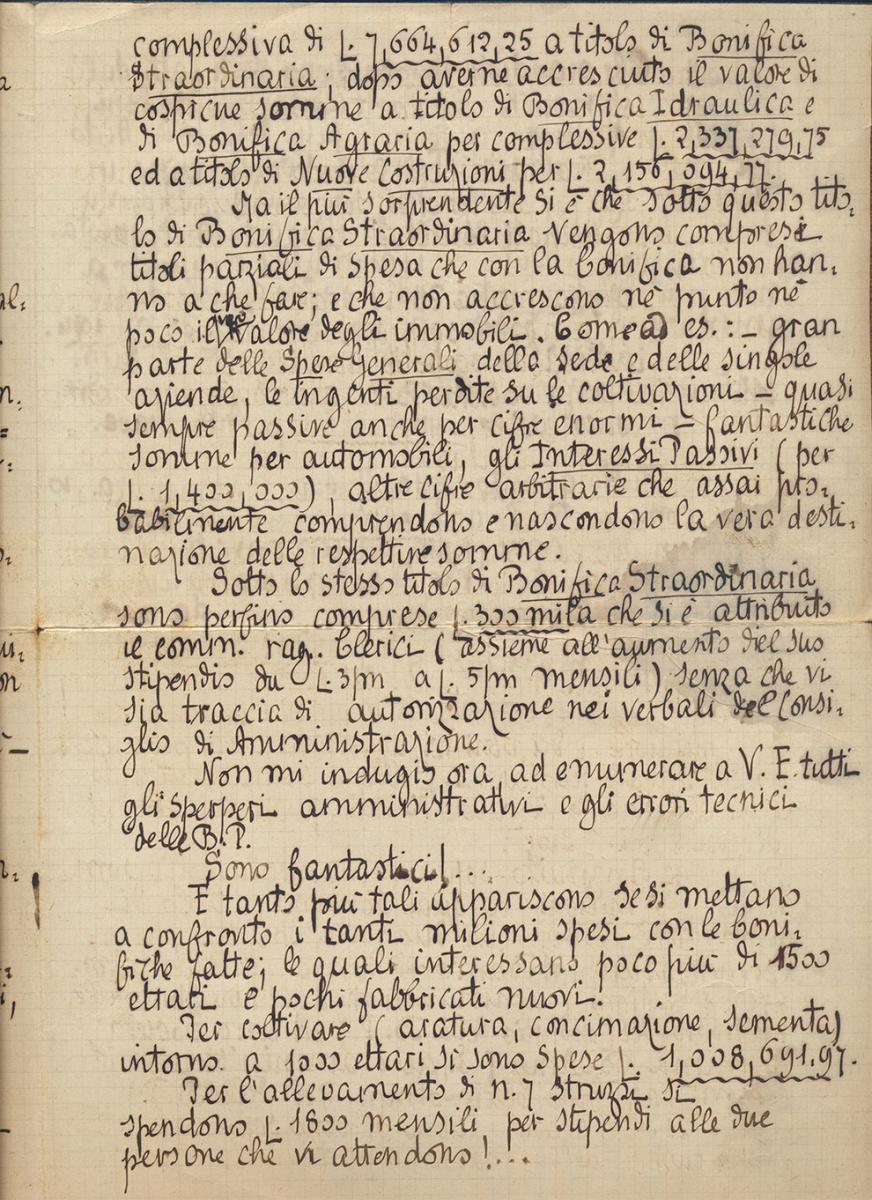 complessiva di L. 7,664,612,25 a titolo di Bonifica
Straordinaria; dopo averne accresciuto il valore di
cospicue somme a titolo di Bonifica Idraulica e
di Bonifica Agraria per complessive L. 2,337,279,75
ed a titolo di Nuove Costruzioni per L. 2,156,094,77.
Ma il più sorprendente si è che sotto questo tito=
lo di Bonifica Straordinaria vengono compresi
titoli parziali di spesa che con la bonifica non han=
no a che fare; e che non accrescono nè punto nè
poco il valore degli immobili. Come ad es.: - gran
parte delle Spese Generali della sede e delle singole
aziende, le ingenti perdite su le coltivazioni - quasi
sempre passive anche per cifre enormi - fantastiche
somme per automobili, gli Interessi Passivi (per
L. 1,400,000), altre cifre arbitrarie che assai pro=
babilmente comprendono e nascondono la vera desti=
nazione delle respettive somme.
Sotto lo stesso titolo di Bonifica Straordinaria
sono perfino comprese L. 300 mila che si è attribuito
il comm. rag. Clerici (assieme all'aumento del suo
stipendio da L. 3/m a L. 5/m mensili) senza che vi
sia traccia di autorizzazione nei verbali del Consi=
glio di Amministrazione.
Non mi indugio ora ad enumerare a V. E. tutti
gli sperperi amministrativi e gli errori tecnici
delle B.P.
Sono fantastici!...
E tanto più tali appariscono se si mettano
a confronto i tanti milioni spesi con le boni=
fiche fatte; le quali interessano poco più di 1500
ettari e pochi fabbricati nuovi.
Per coltivare (aratura, concimazione, sementa)
intorno a 1000 ettari si sono spese L. 1,008,691.97.
Per l'allevamento di n. 7 struzzi si
spendono L. 1800 mensili per stipendi alle due
persone che vi attendono!...